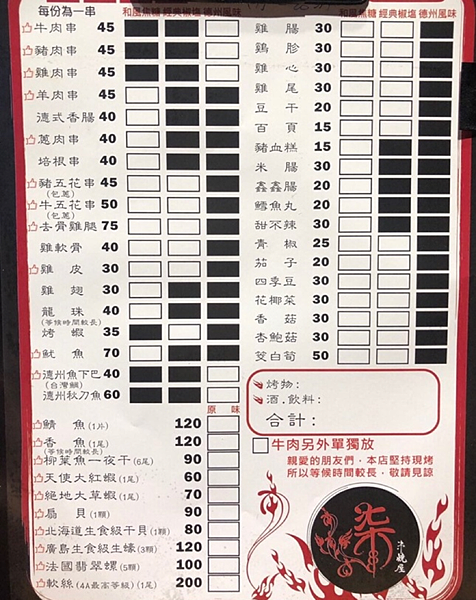 每份為一串 和風焦糖 經典椒塩 德州風味
牛肉串 45
豬肉串 45
雞肉串 45
羊肉串 40
德式香腸 40
蔥肉串 40
培根串 40
豬五花串 45
(包蔥)
牛五花串 50
(包蔥)
去骨雞腿 75
雞軟骨 40
雞皮 30
雞翅 30
龍珠 40
(等候時間較長)
烤蝦 35
魷魚 70
德州魚下巴 40
(台灣鯛)
德州秋刀魚 60
原味
鯖魚(1片) 120
香魚(1尾) 120
(等候時間較長)
柳葉魚一夜干(6尾) 90
天使大紅蝦(1尾) 60
絕地大草蝦(1尾) 70
扇貝(1顆) 90
北海道生食級干貝(1顆) 80
廣島生食級生蠔(3顆) 120
法國翡翠螺(5顆) 100
軟絲(4A最高等級)(1尾) 200
和風焦糖 經典椒塩 德州風味
雞腸 30
雞胗 30
雞心 30
雞尾 30
豆干 20
百頁 15
豬血糕 15
米腸 30
鑫鑫腸 20
鱈魚丸 20
甜不辣 30
青椒 25
茄子 20
四季豆 30
花椰菜 30
香菇 30
杏鮑菇 30
筊白筍 50
烤物:
酒.飲料:
合計:
牛肉另外單獨放
親愛的朋友們,本店堅持現烤
所以等候時間較長,敬請見諒
柒
柒燒屋